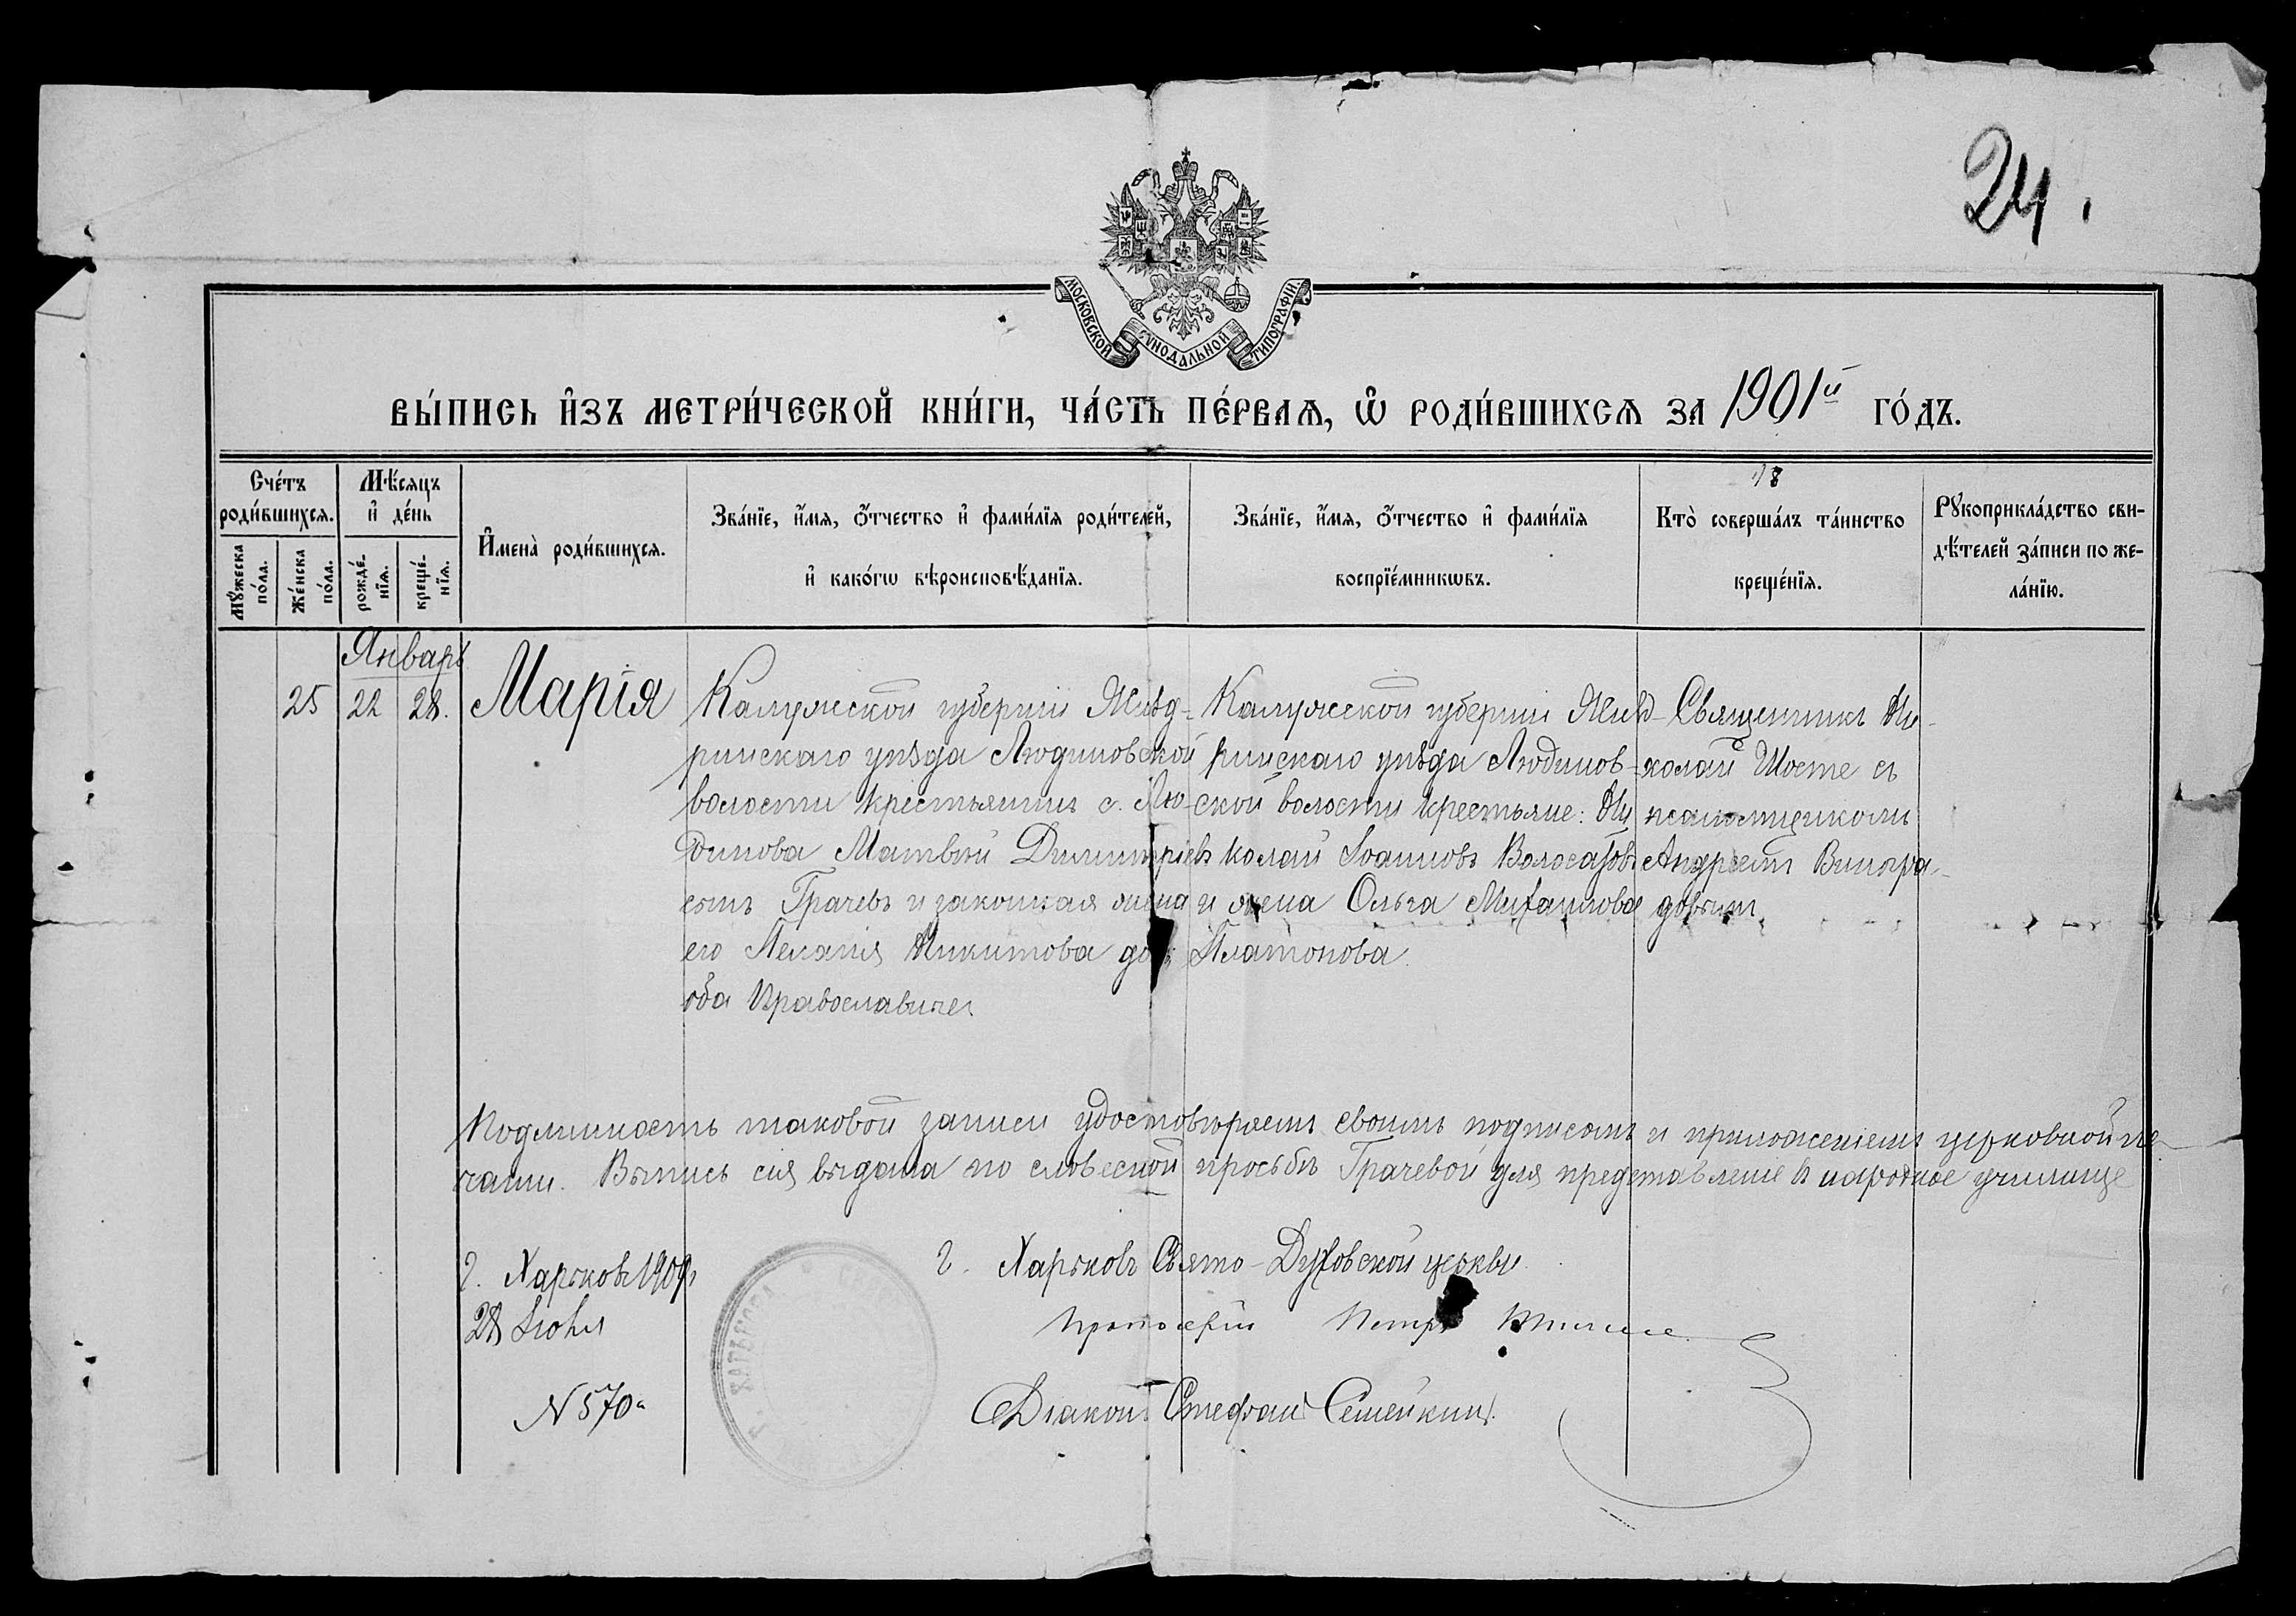 24.
МОСКОВСКОЙ СѴНОДАЛЬНОЙ ТИПОГРАФІИ.
ВЫ́ПИСЬ И҆ЗЪ МЕТРИ́ЧЕСКОЙ КНИ́ГИ, ЧА́СТЬ ПЕ́РВАѦ, Ѡ҆ РОДИ́ВШИХСѦ ЗА 1901й ГО́ДЪ.
Сче́тъ роди́вшихсѧ.
Мꙋ́жеска по́ла.
Же́нска по́ла.
Мѣ́сѧцъ и҆ де́нь
рожде́нїѧ.
креще́нїѧ.
И҆мена̀ роди́вшихсѧ.
Зва́нїе, и҆́мѧ, ѻ҆́тчество и҆ фами́лїѧ роди́телей,
и҆ како́гѡ вѣроисповѣ́данїѧ.
Зва́нїе, и҆́мѧ, ѻ҆́тчество и҆ фами́лїѧ
воспрїе́мникѡвъ.
Кто̀ соверша́лъ та́инство
креще́нїѧ.
Рꙋкоприкла́дство сви-
дѣ́телей за́писи по же-
ла́нїю.
Январь
25 22 28.
Марія
Калужской губерніи Жизд-
ринскаго уѣзда Людиновской
волости крестьянинъ с. Лю-
динова Матвѣй Димитріевъ
сынъ Грачевъ и законная жена
его Пелагія Никитова
оба Православные
Калужской губерніи Жизд-
ринскаго уѣзда Людинов-
ской волости крестьяне: Ни
колай Іоанновъ
и жена Ольга Михаилова
Платонова
Священникъ Ни-
колай Шосте съ
псаломщикомъ
Андреемъ Виногра-
довымъ.
Подлинность таковой записи удостовѣряемъ своимъ подписомъ и приложеніемъ церковной пе
чати. Выпись сія выдана по словесной просьбѣ Грачевой для представленіе въ народное училище
г. Харьковъ 1909
28 Іюня
N 570
г. Харьковъ Свято-Духовской церкви
Протоіерей Петръ
Діаконъ Стефанъ Семейкинъ.
Г. ХАРЬКОВА